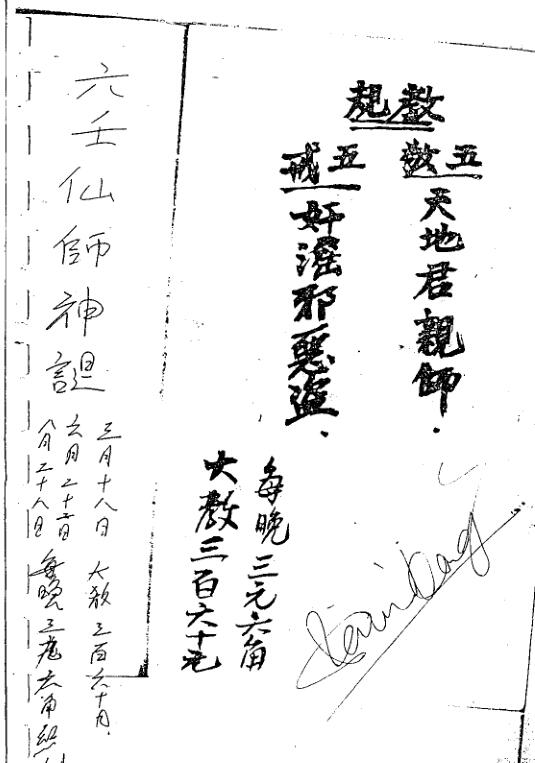 教規
五敬
天地君親師.
五戒
奸淫邪惡盜.
每晚三元六角
大教三百六十元
六壬仙師神誕
三月十八日 大教三百六十
六月二十日
八月二十八日 每晚三元六角